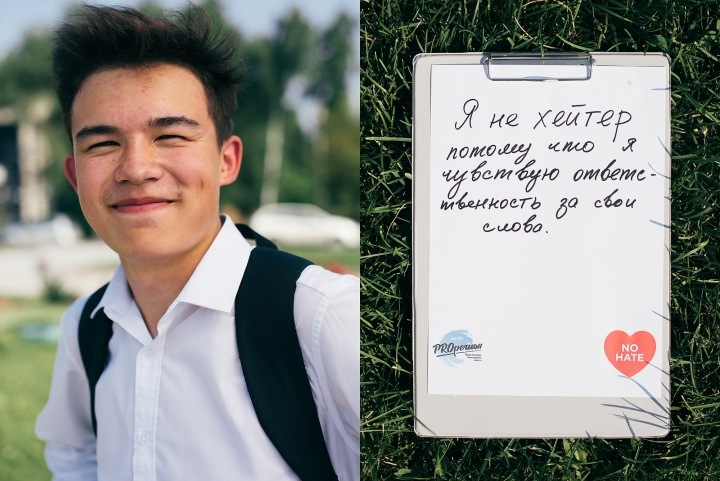 Я не хейтер
потому что я
чувствую ответс-
твенность за свои
слова.
PROрегион
NO
HATE